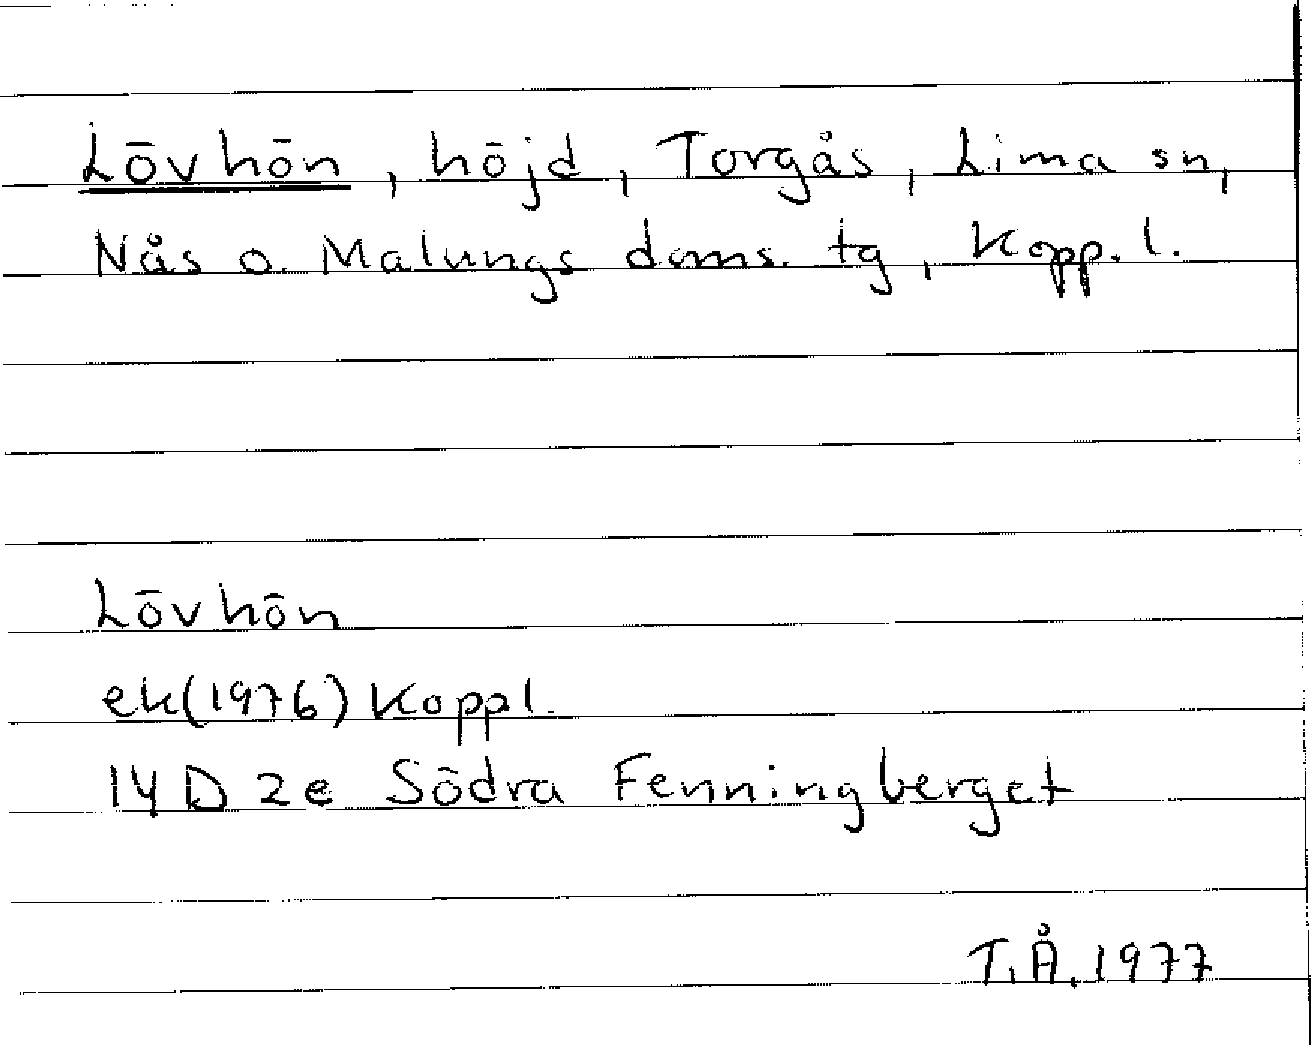 Lövhön, höjd, Torgås, Lima sn,
Nås o. Malungs doms. tg, Kopp. l.
Lövhön
ek(1976) Koppl.
14 D 2e Södra Fenningberget
T.Å. 1977